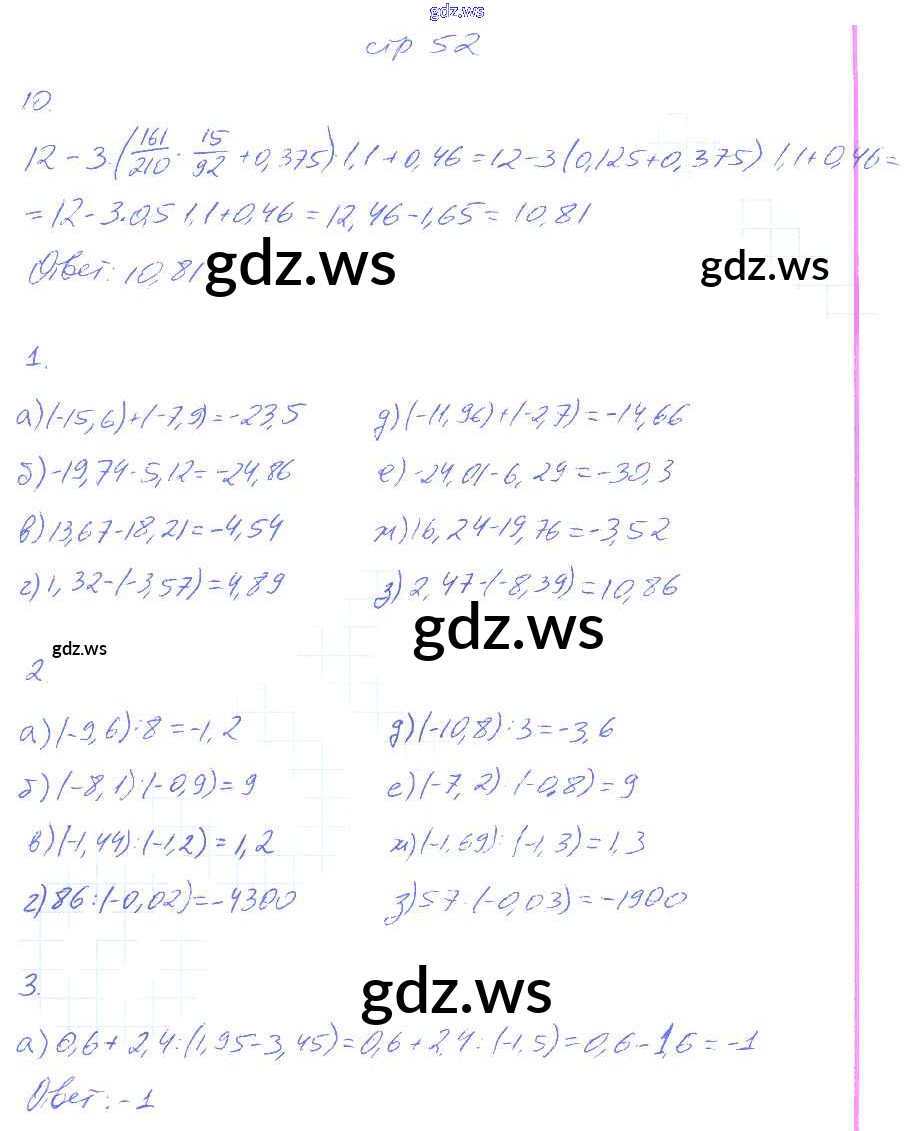 gdz.ws
стр 52
10.
12 - 3·(161/210 · 15/92 + 0,375)·1,1 + 0,46 = 12 - 3(0,125 + 0,375) 1,1 + 0,46 =
= 12 - 3·0,5 1,1 + 0,46 = 12,46 - 1,65 = 10,81
Ответ: 10,81
gdz.ws
gdz.ws
1.
а) (-15,6) + (-7,9) = -23,5
д) (-11,96) + (-2,7) = -14,66
б) -19,74 - 5,12 = -24,86
е) -24,01 - 6,29 = -30,3
в) 13,67 - 18,21 = -4,54
ж) 16,24 - 19,76 = -3,52
г) 1,32 - (-3,57) = 4,89
з) 2,47 - (-8,39) = 10,86
gdz.ws
gdz.ws
2
а) (-9,6) : 8 = -1,2
д) (-10,8) : 3 = -3,6
б) (-8,1) : (-0,9) = 9
е) (-7,2) : (-0,8) = 9
в) (-1,44) : (-1,2) = 1,2
ж) (-1,69) : (-1,3) = 1,3
г) 86 : (-0,02) = -4300
з) 57 : (-0,03) = -1900
3.
gdz.ws
а) 0,6 + 2,4 : (1,95 - 3,45) = 0,6 + 2,4 : (-1,5) = 0,6 - 1,6 = -1
Ответ: -1